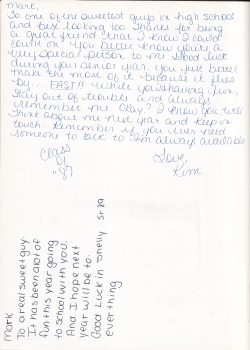 Mark,
To one of the sweetest guys in high school
and best looking too. Thanks for being
a great friend that I know I could
count on. You better know you're a
very special person to me. Good luck
during your senior year. You just better
make the most of it because it flies
by... FAST!! While you're having fun,
stay out of trouble and always
remember me. Okay? I know you will
think about me next year and keep in
touch. Remember if you ever need
someone to talk to I'm always available
Class
of
"87"
Love,
Kim
Mark
To a real sweet guy.
It has been a lot of
fun this year going
to school with you.
And I hope next
year will be to.
Good Luck in
everything
Sr 89